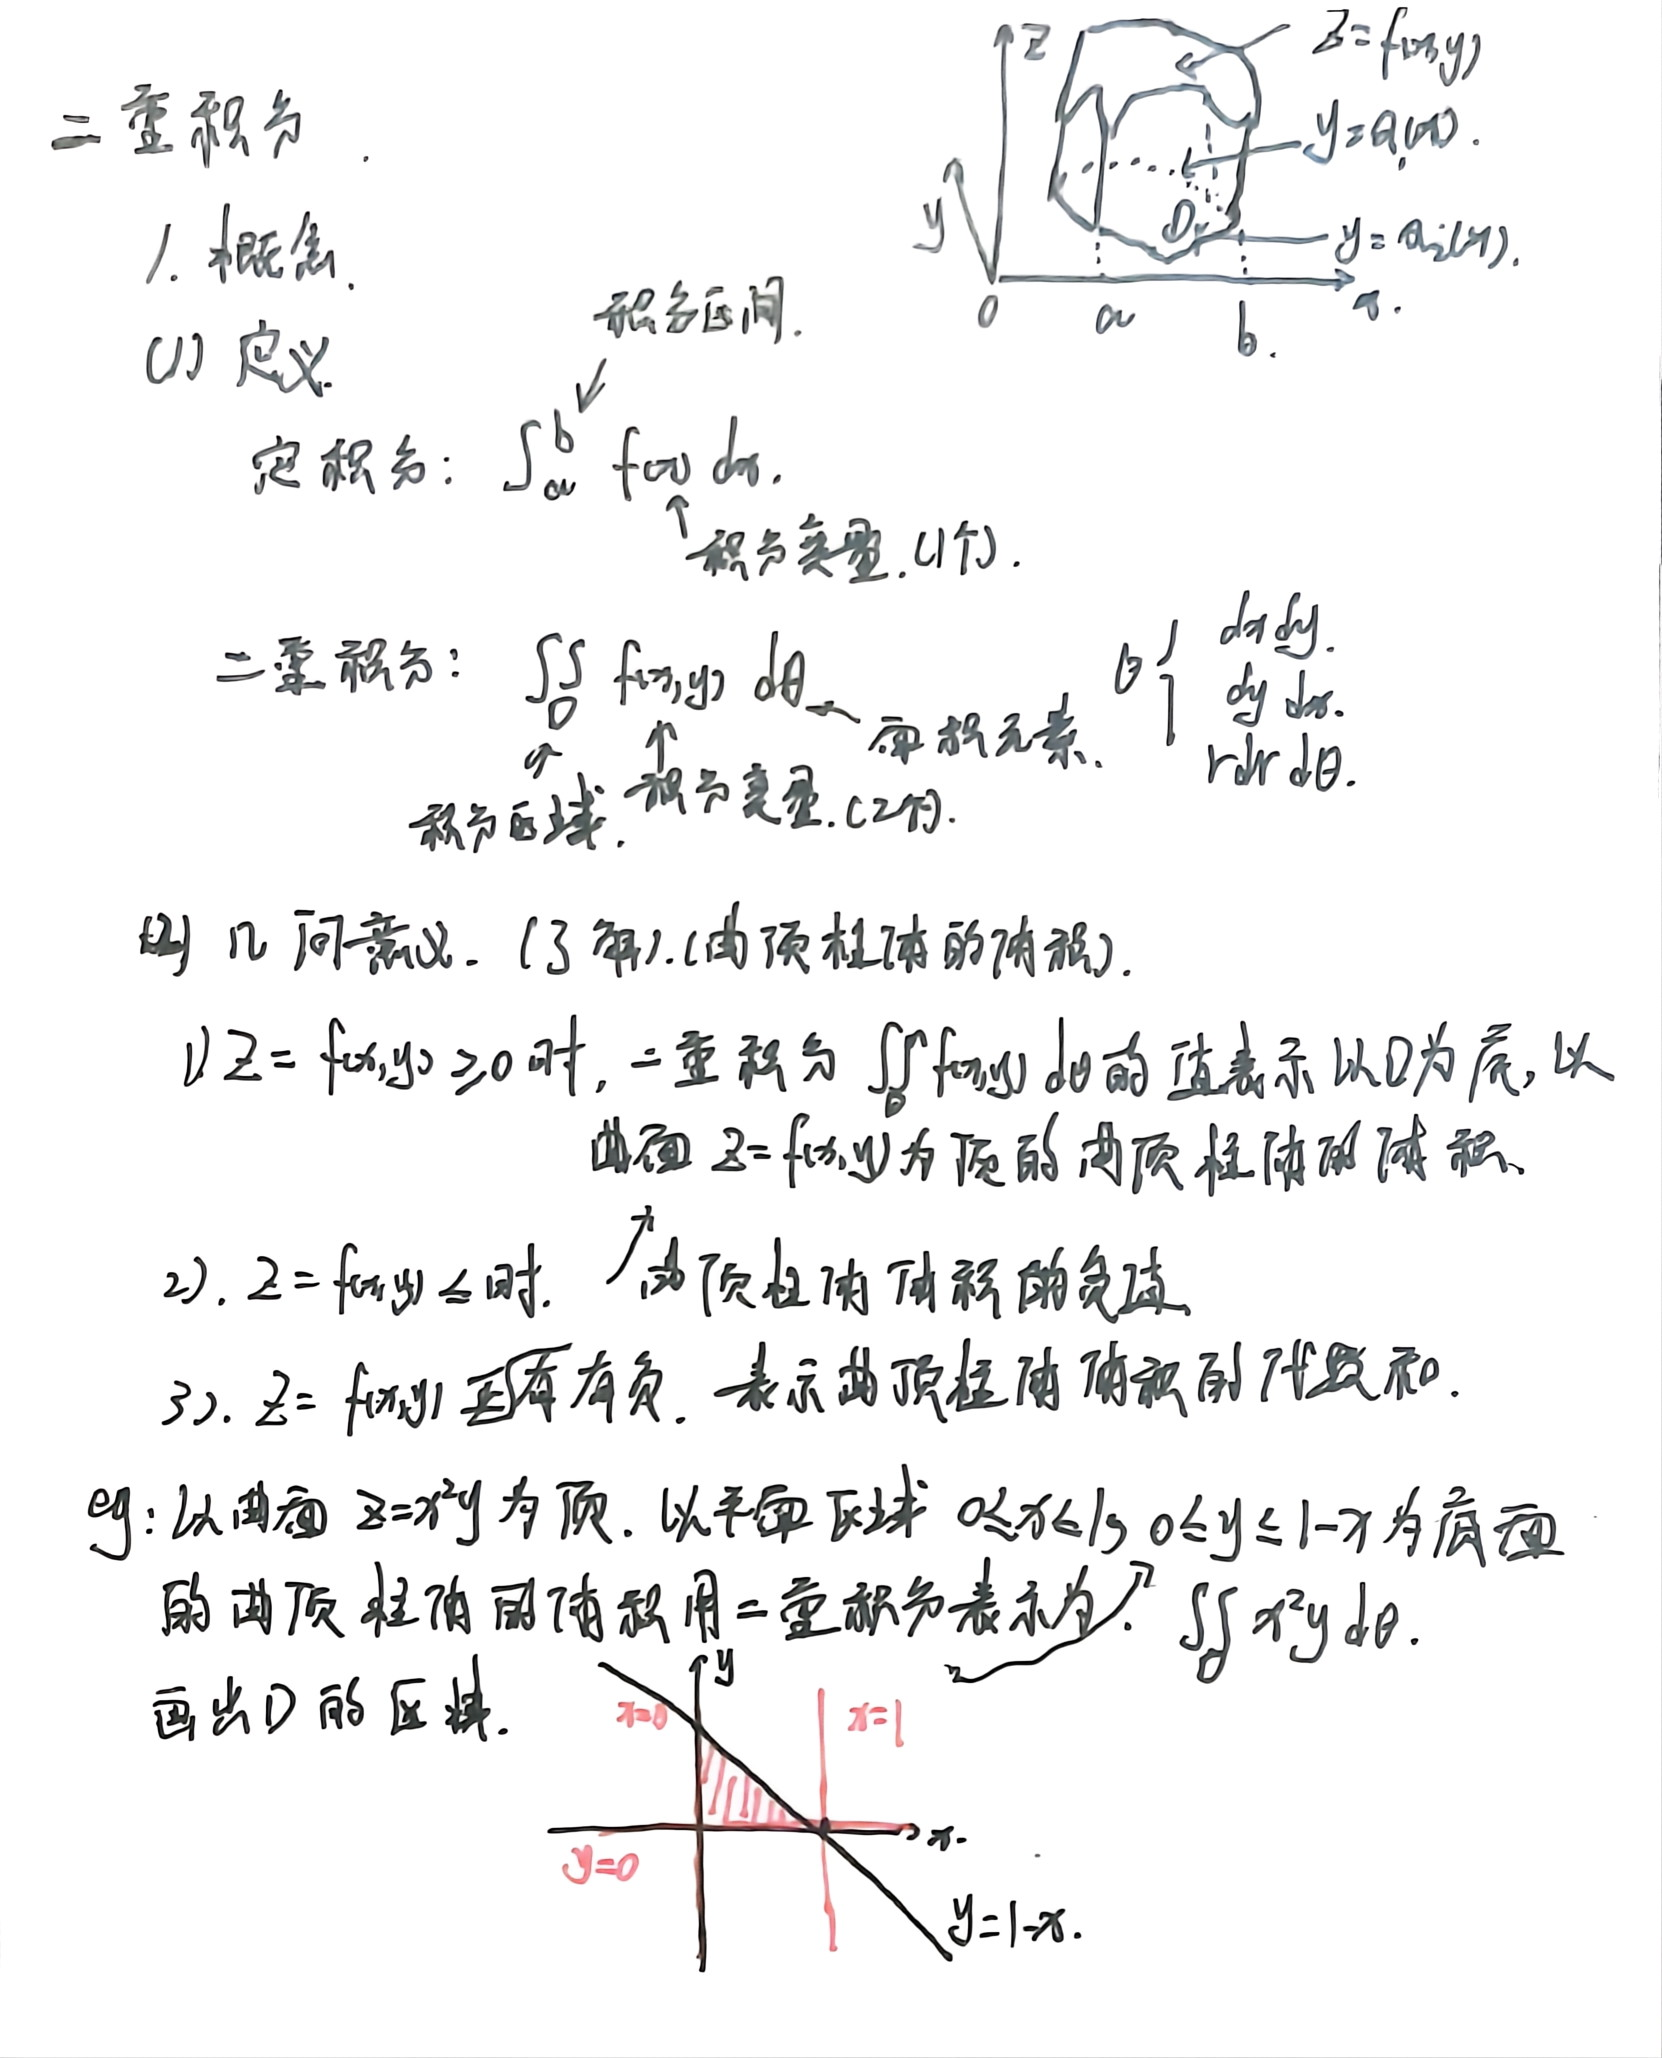 二重积分.
z
z=f(x,y)
y=Q₁(x).
y
D
y=Q₂(x).
0
a
b.
x.
1. 概念.
(1) 定义.
积分区间.
定积分: ∫ₐᵇ f(x) dx.
积分变量.(1个).
二重积分: ∬_D f(x,y) dθ
面积元素.
θ { dxdy.
dy dx.
rdr dθ.
积分区域.
积分变量.(2个).
(2) 几何意义. (了解).(曲顶柱体的体积).
1) Z=f(x,y)≥0时, 二重积分 ∬_D f(x,y) dθ的值表示以D为底, 以
曲面 Z=f(x,y)为顶的曲顶柱体的体积.
2). Z=f(x,y)≤时. 曲顶柱体体积的负值.
3). Z=f(x,y)有正有负. 表示曲顶柱体体积的代数和.
eg: 以曲面 z=x²y 为顶. 以平面区域 0≤x≤1, 0≤y≤1-x为底面
的曲顶柱体的体积用二重积分表示为? ∬_D x²y dθ.
画出D的区域.
y
x=0
x=1
x.
y=0
y=1-x.